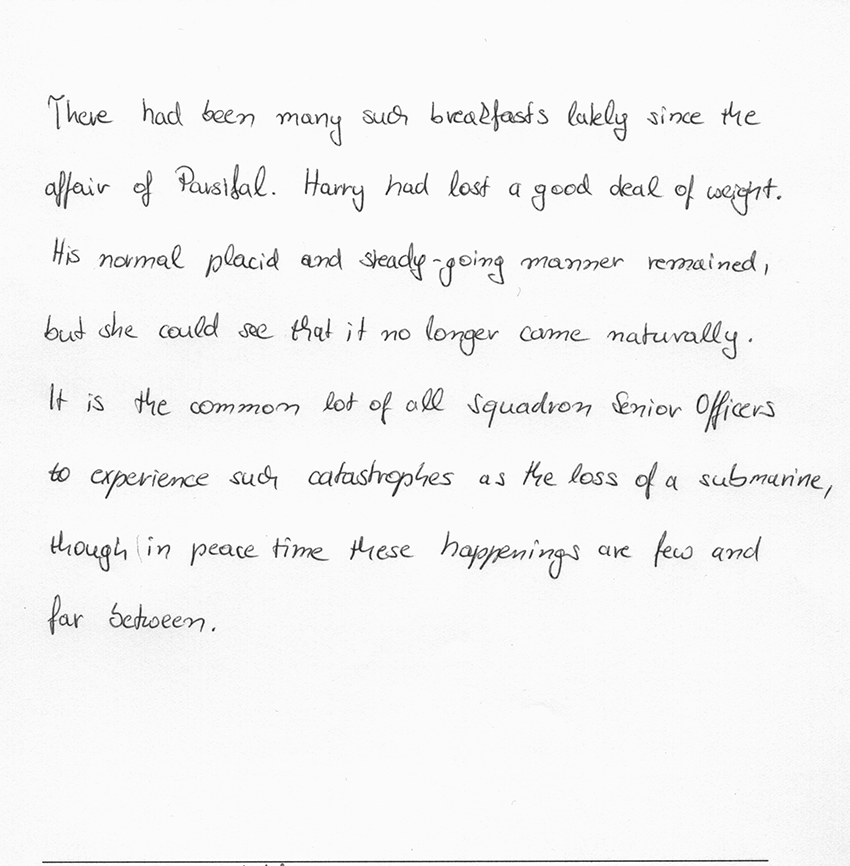 There had been many such breakfasts lately since the
affair of Parsifal. Harry had lost a good deal of weight.
His normal placid and steady-going manner remained,
but she could see that it no longer came naturally.
It is the common lot of all Squadron Senior Officers
to experience such catastrophes as the loss of a submarine,
though in peace time these happenings are few and
far between.